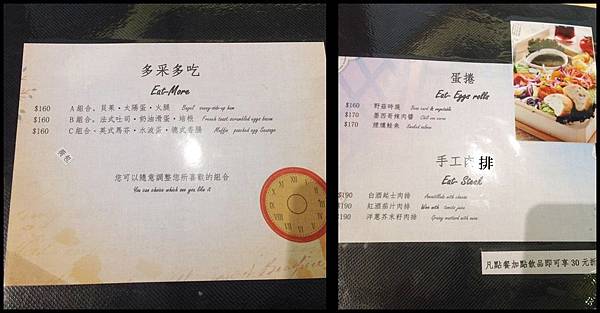 多采多吃
Eat-More
$160 A組合、貝果・太陽蛋・火腿 Bagel sunny-side-up ham
$160 B組合、法式吐司・奶油滑蛋・培根 French toast scrambled eggs bacon
$160 C組合、英式馬芬・水波蛋・德式香腸 Muffin poached egg Sausage
您可以隨意調整您所喜歡的組合
You can choice which you like it
蛋捲
Eat-Eggs rolls
$160 野菇時蔬
$170 墨西哥辣肉醬
$170 煙燻鮭魚 Smoked salmon
手工肉排
Eat-Steak
$190 白酒起士肉排 with cheese
$190 紅酒茄汁肉排 Wine with tomato juice
$190 洋蔥芥末籽肉排
凡點餐加點飲品即可享30元折